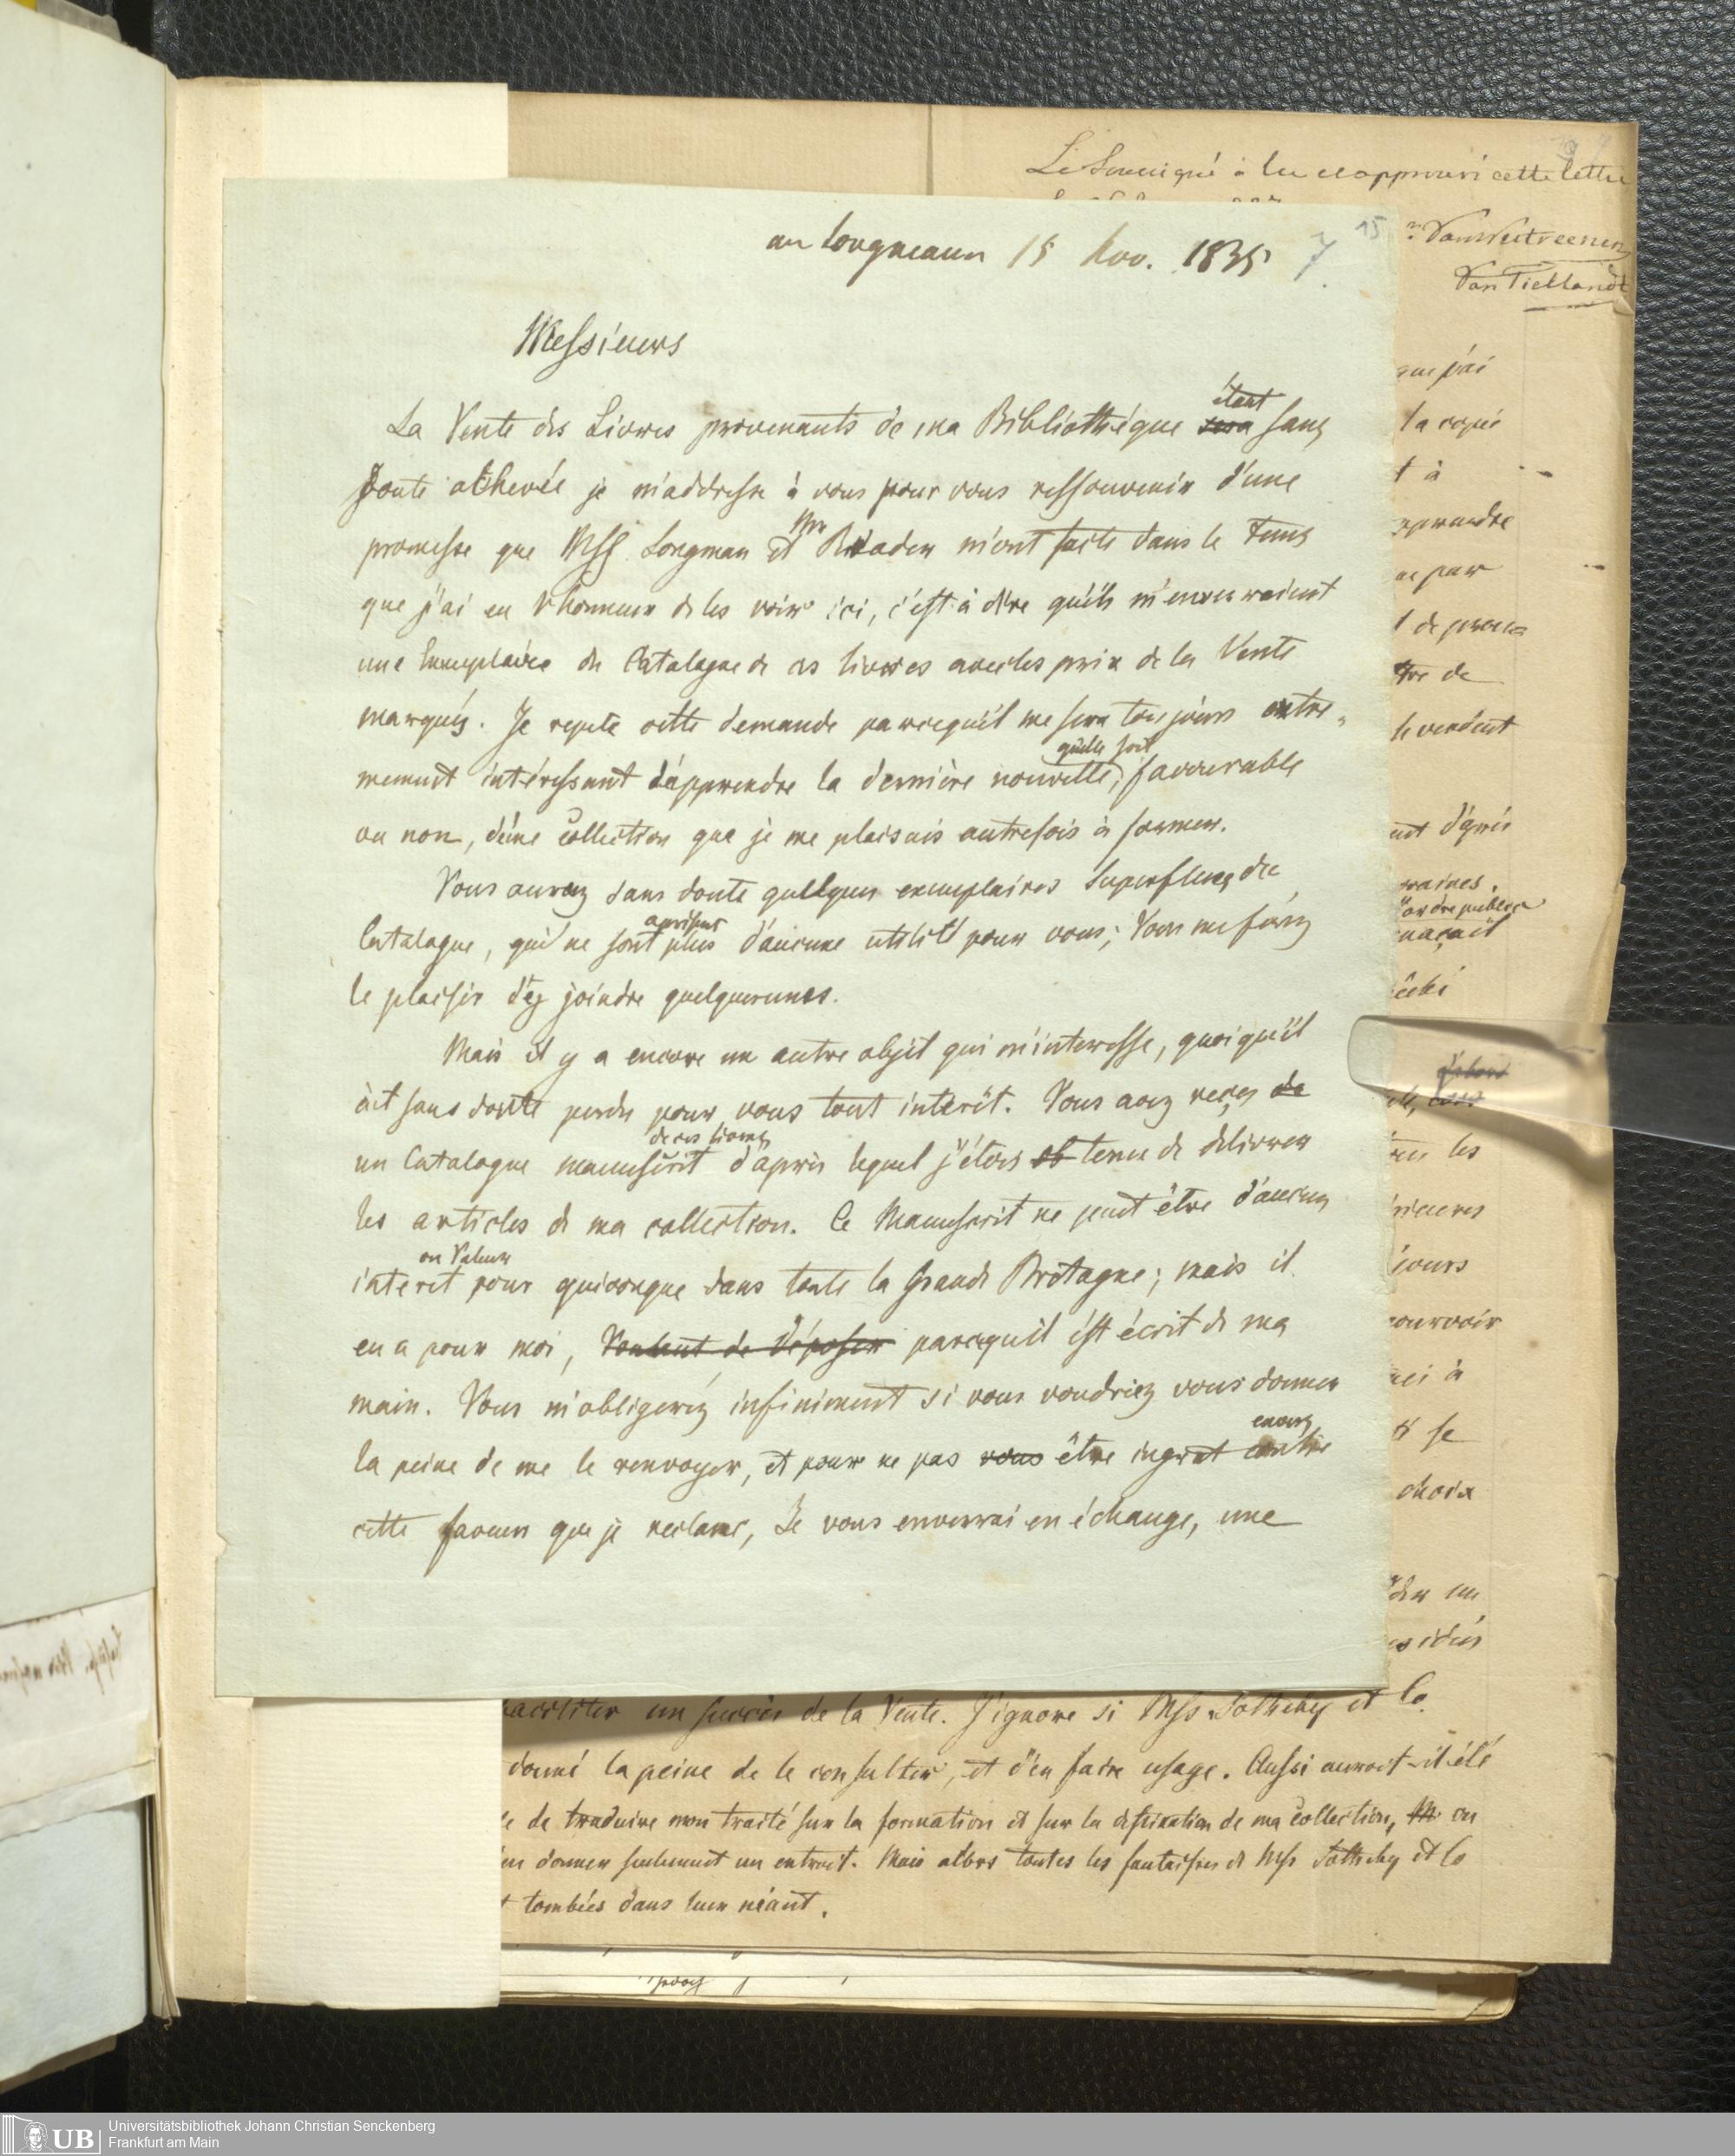 Le Soussigné à lu et approuvé cette lettre
Van Westreenen
Van Tiellandt
15
an Longman 15 Nov. 1835 7.
Messieurs
La Vente des Livres provenants de ma Bibliothéque sera étant sans
doute achevée je m'addresse à vous pour vous ressouvenir d'une
promesse que Mss Longman et Mr Reader m'ont faite dans le tems
que j'ai eu l'honneur de les voir ici, c'est à dire qu'ils m'enverraient
une Exemplaire du Catalogue de ces livres avec les prix de la Vente
marqués. Je repete cette demande parcequ'il me sera toujours extre-
mement intéressant d'apprendre la dernière nouvelle, qu'elle soit favourable
ou non, d'une Collection que je me plaisais autrefois à former.
Vous aurez sans doute quelques exemplaires superflues du
Catalogue, qui ne sont plus apresent d'aucune utilité pour vous; Vous me ferez
le plaisir d'ej joindre quelquesunes.
Mais il y a encore un autre objet qui m'interesse, quoiqu'il
ait sans doute perdu pour vous tout intérêt. Vous avez reçu de
un Catalogue manuscrit de ces livres d'apres lequel j'étois ob tenu de delivrer
les articles de ma collection. Ce Manuscrit ne peut être d'aucun
interet ou Valeur pour quiconque dans toute la Grande Bretagne; mais il
en a pour moi, Voulant de déposer parcequil est écrit de ma
main. Vous m'obligerez infiniment si vous voudriez vous donner
la peine de me le renvoyer, et pour ne pas vous être ingrat contre envers
cette faveur que je reclame, Je vous enverrai en échange, une
que j'ai
la copie
t à
ne par
le vendent
ordre public
les
jours
pourvoir
à
se
choix
un
faciliter un succès de la Vente. J'ignore si Mss Sotheby et Co.
donné la peine de le consulter, et d'en faire usage. Aussi auroit-il été
de traduire mon traité sur la formation et sur la destination de ma Collection, ou
en donner seulement un extrait. Mais alors toutes les fantaisies de Mss Sotheby et Co
tombées dans leur néant.
UB Universitätsbibliothek Johann Christian Senckenberg
Frankfurt am Main